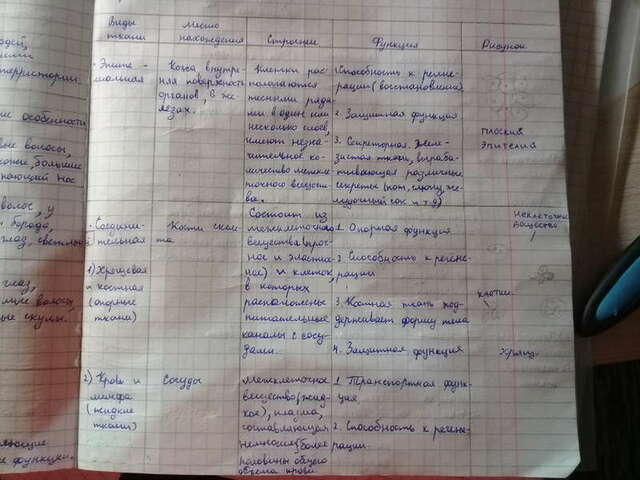 Виды ткани
Место нахождения
Строение
Функция
Рисунок
Эпите-
лиальная
Кожа внутрен-
няя поверхность
органов, в же-
лезах.
Клетки рас-
полагаются
тесными ряда-
ми в один или
несколько слоёв,
имеют незна-
чительное ко-
личество межкле-
точного вещест-
ва.
Способность к регене-
рации (восстановлению)
2. Защитная функция
3. Секреторная. Желе-
зистая ткань, выраба-
тывающая различные
секреты (пот, слюну, же-
лудочный сок и т.д)
плоский
эпителия
Соедини-
тельная
1) Хрящевая
и костная
(опорные
ткани)
Кости скеле-
та
Состоит из
межклеточного
вещества (проч-
ное и эластич-
ное) и клеток,
в которых
расположены
питательные
каналы с сосу-
дами.
1. Опорная функция
2. Способность к регене-
рации
3. Костная ткань под-
держивает форму тела
4. Защитная функция
клетки
хрящ
2) Кровь и
лимфа
(жидкие
ткани)
Сосуды
Межклеточное
вещество (жид-
кое), плазма,
составляющая
более
половины общего
объема крови
1. Транспортная функ-
ция
2. Способность к регене-
рации.
территории.
особенности
волосы,
нос
волос, у
борода,
глаз,
глаз,
волосы,
скулы.
функции.